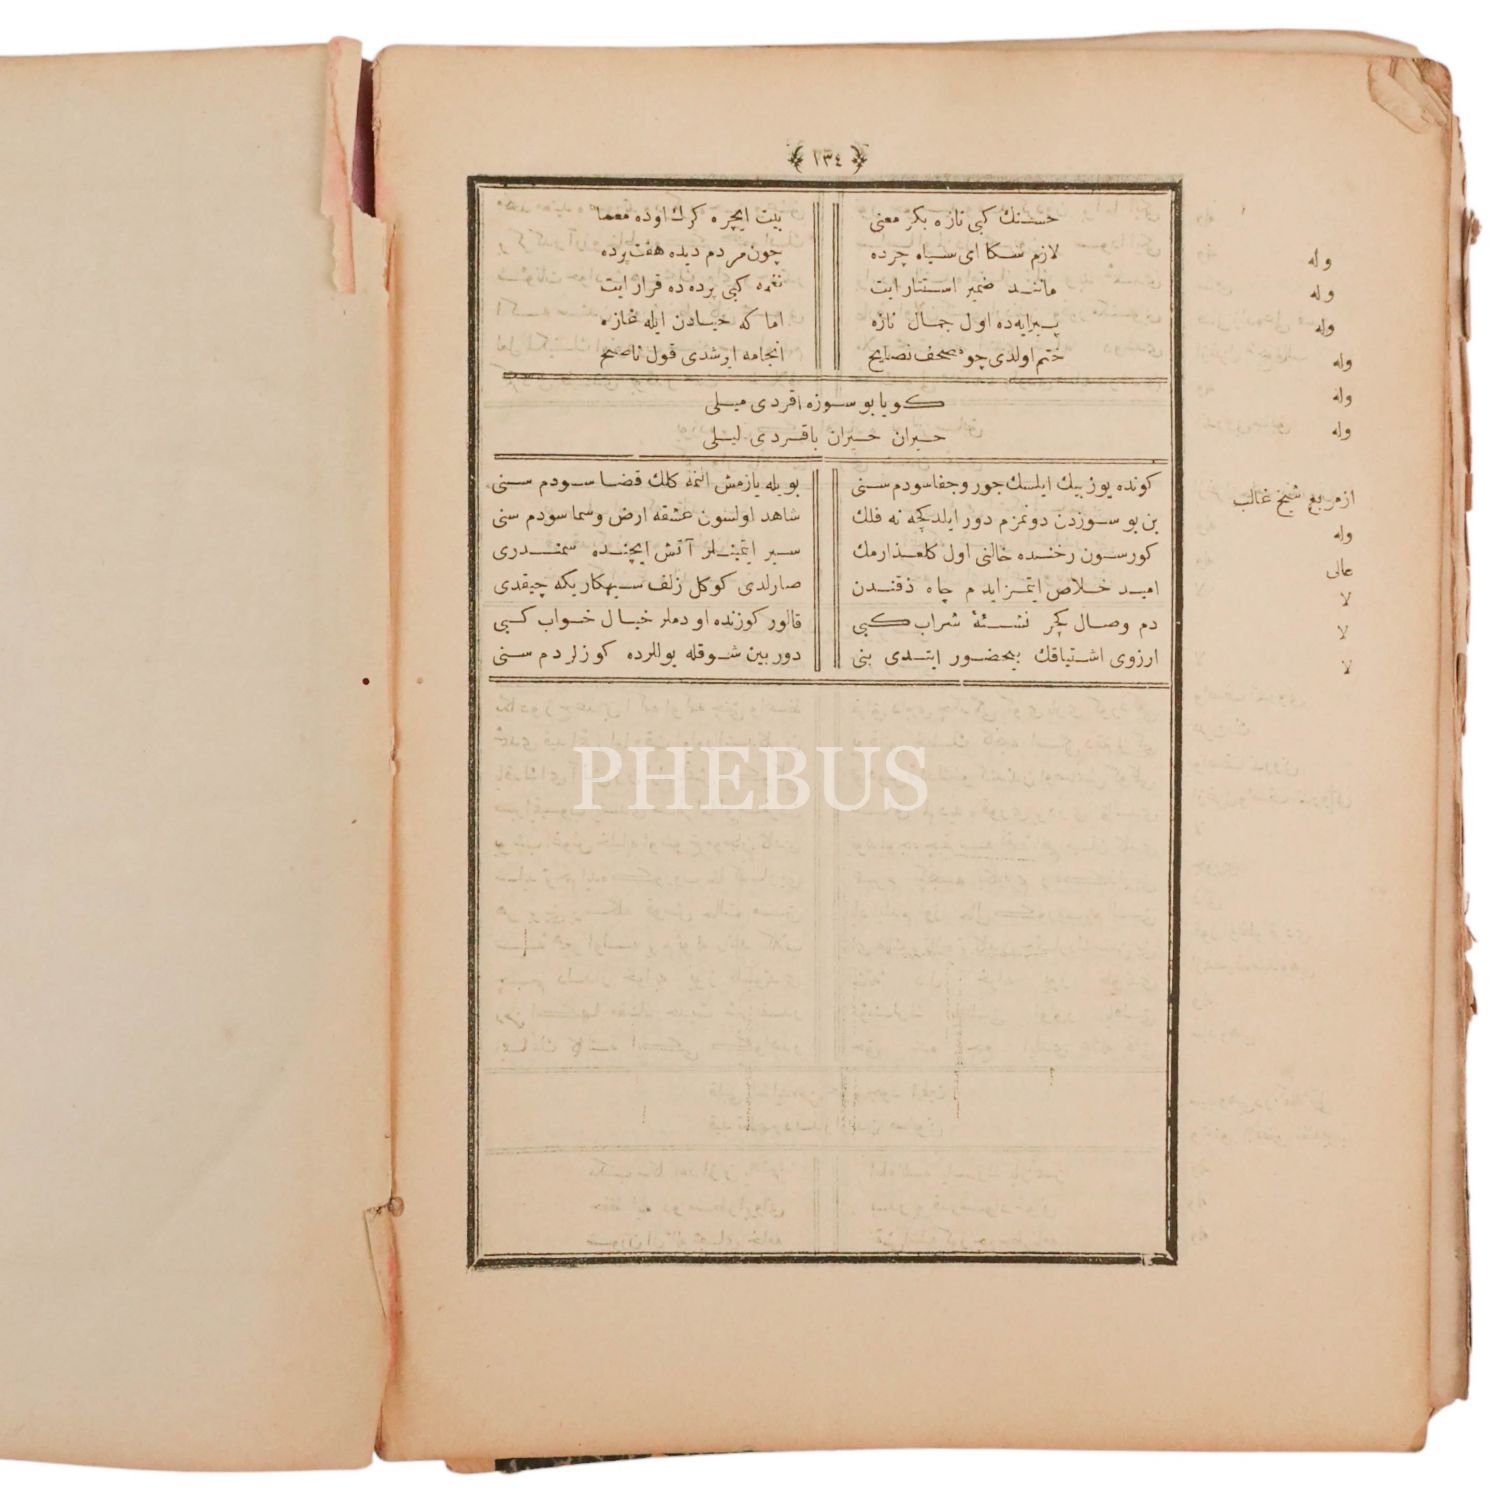 ١٣٤
حسنك كبی تازه بكر معنی بیت ایچره كرك اوده معما
لازم سكا ای سیاه چرده چون مردم دیده هفت پرده
مانند ضمیر استتار ایت نغمه كبی پرده ده قرار ایت
پیرایه ده اول جمال تازه اما كه حیادن ایله غازه
ختم اولدی چو مصحف نصایح انجامه ایرشدی قول ناصح
كویا بو سوزه اقردی میلی
حیران حیران باقردی لیلی
كونده یوز بیك ایلسك جور و جفا سودم سنی بویله یازمش التمه كلك قضا سودم سنی
بن بو سوزدن دونمزم دور ایلدكجه نه فلك شاهد اولسون عشقمه ارض و سما سودم سنی
كورسون رخنده خالنی اول كلعذارمك سیر ایتمینلر آتش ایچنده سمندری
امید خلاص ایتمز ایدم چاه ذقندن صارلدی كوكل زلف سیهكاریكه چیقدی
دم وصال كچر نشئهٔ شراب كبی قالور كوزنده او دملر خیال خواب كبی
ارزوی اشتیاقك بیحضور ایتدی بنی دوربین شوقله یوللرده كوزلردم سنی
وله
وله
وله
وله
وله
وله
ازمربع شیخ غالب
وله
عالی
لا
لا
لا
PHEBUS